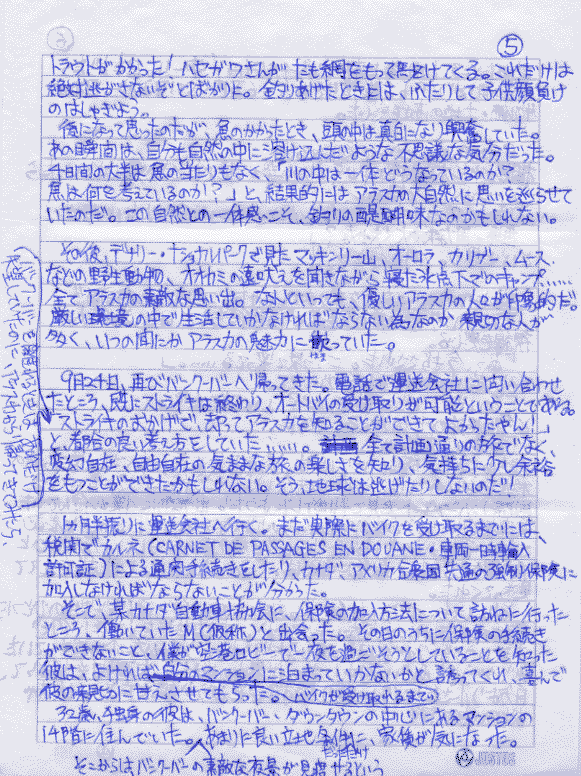 ⑤
トラウトがかかった！ハセガワさんがたも網をもって駆けてくる。これだけは
絶対逃がさないぞとばかりに。釣りあげたときには、
後になって思ったのだが、魚のかかったとき、頭の中は真白になり興奮していた。
あの瞬間は、自分も自然の中に溶け込んだような不思議な気分だった。
千日間の大半は魚の当たりもなく、「川の中は一体どうなっているのか？
魚は何を考えているのか？」と結果的にはアラスカの大自然に思いを巡らせて
いたのだ。この自然との一体感こそ、釣りの醍醐味なのかもしれない。
その後、デナリー・ナショナルパークで見たマッキンリー山、オーロラ、カリブー、ムース
などの野生動物、オオカミの遠吠えを聞きながら寝た氷点下でのキャンプ……
全てアラスカの素敵な思い出。なんといっても、優しいアラスカの人々が印象的だ。
厳しい環境の中で生活していかなければならない為なのか親切な人が
多く、いつの間にかアラスカの魅力に っていた。
9月24日、再びバンクーバーへ帰ってきた。電話で運送会社に問い合わせ
たところ、既にストライキは終わり、オートバイの受け取りが可能ということである。
「ストライキのおかげで、却ってアラスカを知ることができてよかったやん！」
と、都合の良い考え方をしていた……。全て計画通りの旅でなく、
変幻自在、自由自在の気ままな旅の楽しさを知り、気持ちに少し余裕
をもつことができたかもしれない。そう、地球は逃げたりしないのだ！
1ヵ月半振りに運送会社へ行く。まだ実際にバイクを受け取るまでには、
税関でカルネ（CARNET DE PASSAGES EN DOUANE・車両一時輸入
許可証）による通関手続きをしたり、カナダ、アメリカ合衆国共通の強制保険に
加入しなければならないことが分かった。
そこで、某カナダ自動車協会に、保険の加入方法について訪ねに行った
ところ、働いていたM（仮称）と出会った。その日のうちに保険の手続き
ができないこと、僕が空港ロビーで一夜を過ごそうとしていることを知った
彼は、よければ自分のマンションに泊まっていかないかと誘ってくれ、喜んで
彼の親切に甘えさせてもらった。バイクが受け取れるまで。
32歳、独身の彼は、バンクーバー・ダウンタウンの中心にあるマンションの
14階に住んでいた。あまりに良い立地条件に、家賃が気になった。
そこからはバンクーバーの素敵な夜景が見渡せるという